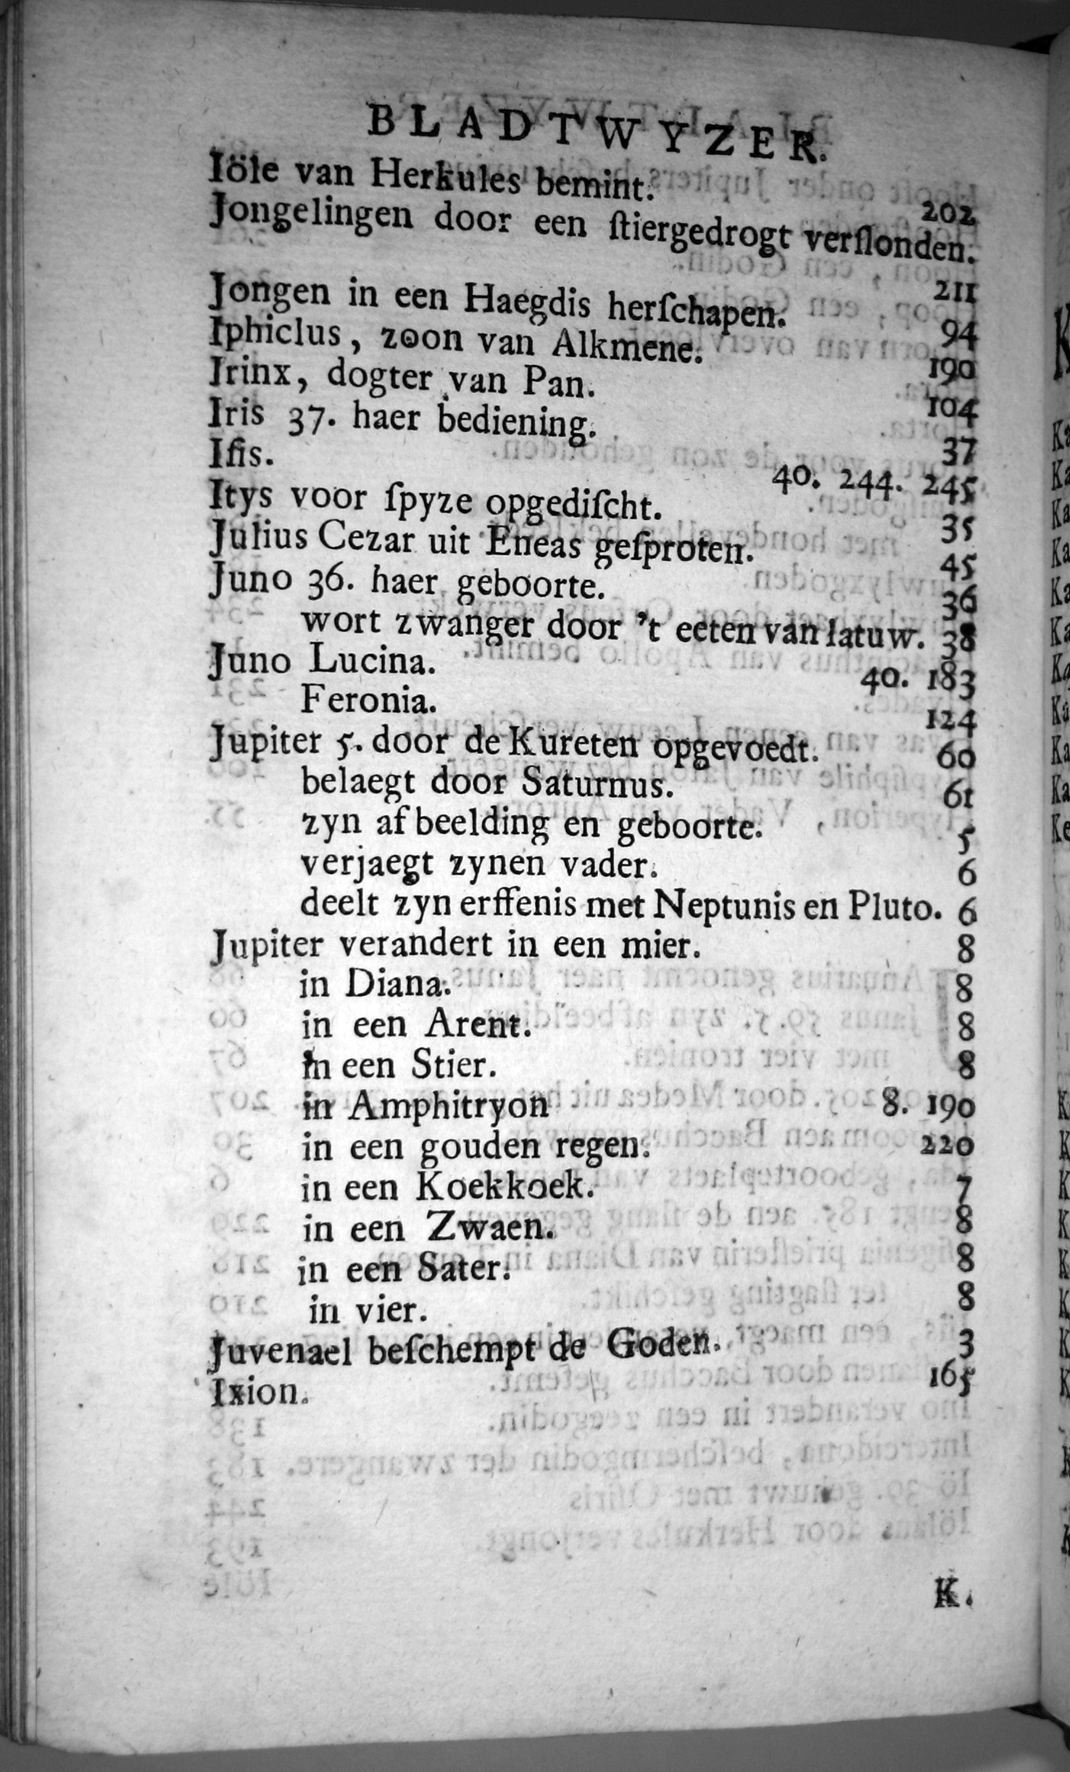 BLADTWYZER.
Iöle van Herkules bemint. 202
Jongelingen door een ſtiergedrogt verſlonden.
211
Jongen in een Haegdis herſchapen. 94
Iphiclus, zoon van Alkmene. 190
Irinx, dogter van Pan. 104
Iris 37. haer bediening. 37
Iſis. 40. 244. 245
Itys voor ſpyze opgediſcht. 35
Julius Cezar uit Eneas geſproten. 45
Juno 36. haer geboorte. 36
wort zwanger door 't eeten van latuw. 38
Juno Lucina. 40. 183
Feronia. 124
Jupiter 5. door de Kureten opgevoedt. 60
belaegt door Saturnus. 61
zyn afbeelding en geboorte. 5
verjaegt zynen vader. 6
deelt zyn erffenis met Neptunis en Pluto. 6
Jupiter verandert in een mier. 8
in Diana. 8
in een Arent. 8
in een Stier. 8
in Amphitryon 8. 190
in een gouden regen. 220
in een Koekkoek. 7
in een Zwaen. 8
in een Sater. 8
in vier. 8
Juvenael beſchempt de Goden. 3
Ixion. 165
K.